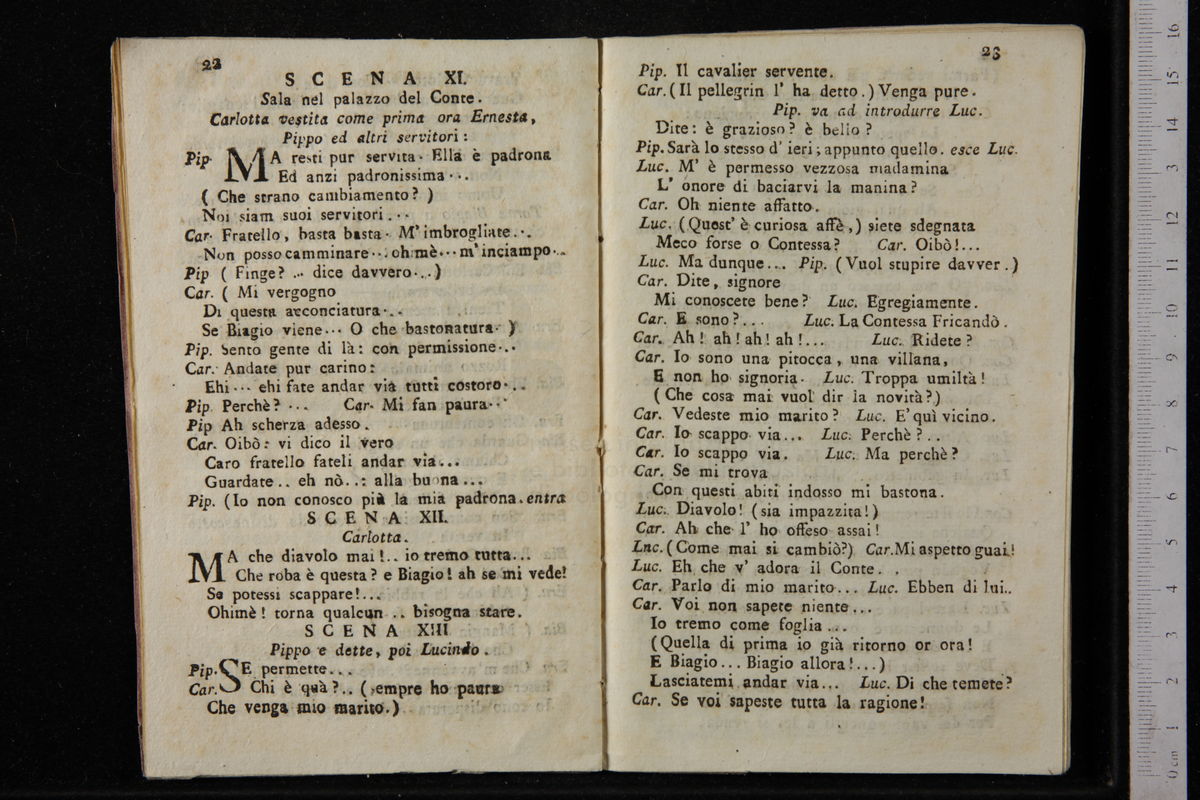 22
SCENA XI.
Sala nel palazzo del Conte.
Carlotta vestita come prima ora Ernesta,
Pippo ed altri servitori:
Pip. MA resti pur servita. Ella è padrona
Ed anzi padronissima...
( Che strano cambiamento? )
Noi siam suoi servitori...
Car. Fratello, basta basta. M'imbrogliate...
Non posso camminare... ohmè... m'inciampo...
Pip ( Finge? .. dice davvero...)
Car. ( Mi vergogno
Di questa acconciatura...
Se Biagio viene... O che bastonatura. )
Pip. Sento gente di là: con permissione...
Car. Andate pur carino:
Ehi... ehi fate andar via tutti costoro...
Pip. Perchè? ... Car. Mi fan paura..
Pip Ah scherza adesso.
Car. Oibò: vi dico il vero
Caro fratello fateli andar via...
Guardate.. eh nò..: alla buona...
Pip. (Io non conosco più la mia padrona. entra
SCENA XII.
Carlotta.
MA che diavolo mai!.. io tremo tutta...
Che roba è questa? e Biagio! ah se mi vede!
Se potessi scappare!...
Ohimè! torna qualcun .. bisogna stare.
SCENA XIII
Pippo e dette, poi Lucindo.
Pip. SE permette...
Car. Chi è quà?.. (sempre ho paura
Che venga mio marito.)
23
Pip. Il cavalier servente.
Car. (Il pellegrin l' ha detto.) Venga pure.
Pip. va ad introdurre Luc.
Dite: è grazioso? è bello?
Pip. Sarà lo stesso d' ieri; appunto quello. esce Luc.
Luc. M' è permesso vezzosa madamina
L' onore di baciarvi la manina?
Car. Oh niente affatto.
Luc. (Quest' è curiosa affè,) siete sdegnata
Meco forse o Contessa? Car. Oibò!...
Luc. Ma dunque... Pip. (Vuol stupire davver.)
Car. Dite, signore
Mi conoscete bene? Luc. Egregiamente.
Car. E sono?... Luc. La Contessa Fricandò.
Car. Ah! ah! ah! ah!... Luc. Ridete?
Car. Io sono una pitocca, una villana,
E non ho signoria. Luc. Troppa umiltà!
(Che cosa mai vuol dir la novità?)
Car. Vedeste mio marito? Luc. E' quì vicino.
Car. Io scappo via... Luc. Perchè?..
Car. Io scappo via. Luc. Ma perchè?
Car. Se mi trova
Con questi abiti indosso mi bastona.
Luc. Diavolo! (sia impazzita!)
Car. Ah che l' ho offeso assai!
Lnc. (Come mai si cambiò?) Car. Mi aspetto guai!
Luc. Eh che v' adora il Conte. .
Car. Parlo di mio marito... Luc. Ebben di lui..
Car. Voi non sapete niente...
Io tremo come foglia...
(Quella di prima io già ritorno or ora!
E Biagio... Biagio allora!...)
Lasciatemi andar via... Luc. Di che temete?
Car. Se voi sapeste tutta la ragione!
0 cm 1 2 3 4 5 6 7 8 9 10 11 12 13 14 15 16